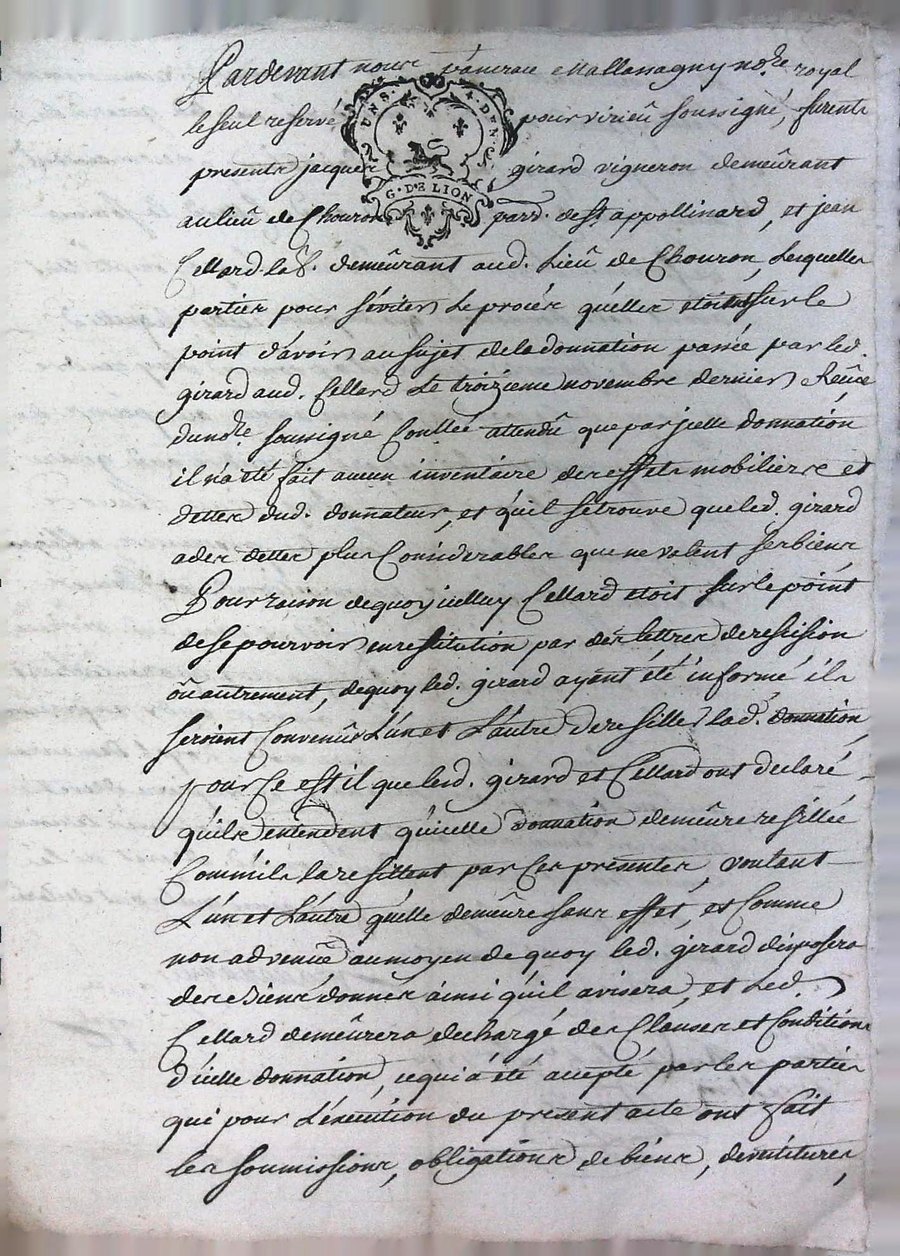 Pardevant nous vancrau Mallassagny no.re royal
le seul reservé pour virieû soussigné, furent
UN S. 4. DEN.
presents jacques girard vigneron demeûrant
G. DE LION
au lieû de Chouron par.d. de st. appollinard, et jean
Cellard lab.r demeûrant aud. Lieû de Chouron, Lesquelles
parties pour s'éviter Le procés qu'elles etoient sur le
point d'avoir au sujet de la donnation passée par led.
girard aud. Cellard Le troizieme novembre dernier Reûce
du no.re soussigné Conllée attendû que par jcelle donnation
il n'a été fait aucun inventaire des effets mobiliers et
dettes dud. donnateur, et qu'il se trouve que led. girard
a des dettes plus Considerables que ne valent ses biens
Pour raison de quoy icelluy Cellard etoit sur le point
de se pourvoir en restitution par des lettres de rescision
oû autrement, de quoy led. girard ayant été informé ils
seroient Convenûs L'un et L'autre de resiller lad.e donnation
pour Ce est il que lesd. girard et Cellard ont declaré
qu'ils entendent qu'icelle donnation demeûre resillée
Comm'ils la resillent par Ces presentes, voulant
L'un et L'autre qu'elle demeûre sans effét, et Comme
non advenûe au moyen de quoy led. girard disposera
de ses biens donnés ainsi qu'il avisera, et Led.
Cellard demeûrera dechargé des Clauses et Conditions
d'icelle donnation, ce qui a été accepté par les parties
qui pour L'éxecution du present acte ont fait
les soumissions, obligations de biens, devetitures,